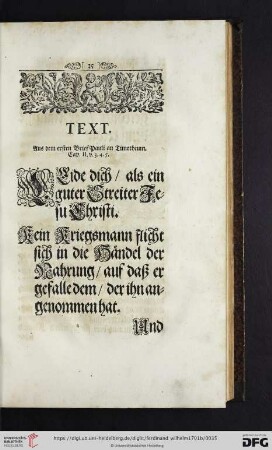 25
TEXT.
Aus dem ersten Brief Pauli an Timotheum.
Cap. II, v. 3. 4. 5.
LEide dich / als ein
guter Streiter Je-
su Christi.
Kein Kriegsmann flicht
sich in die Händel der
Nahrung / auf daß er
gefalle dem / der ihn an-
genommen hat.
Und
https://digi.ub.uni-heidelberg.de/diglit/ferdinand_wilhelm1701b/0035
© Universitätsbibliothek Heidelberg
gefördert durch die
DFG